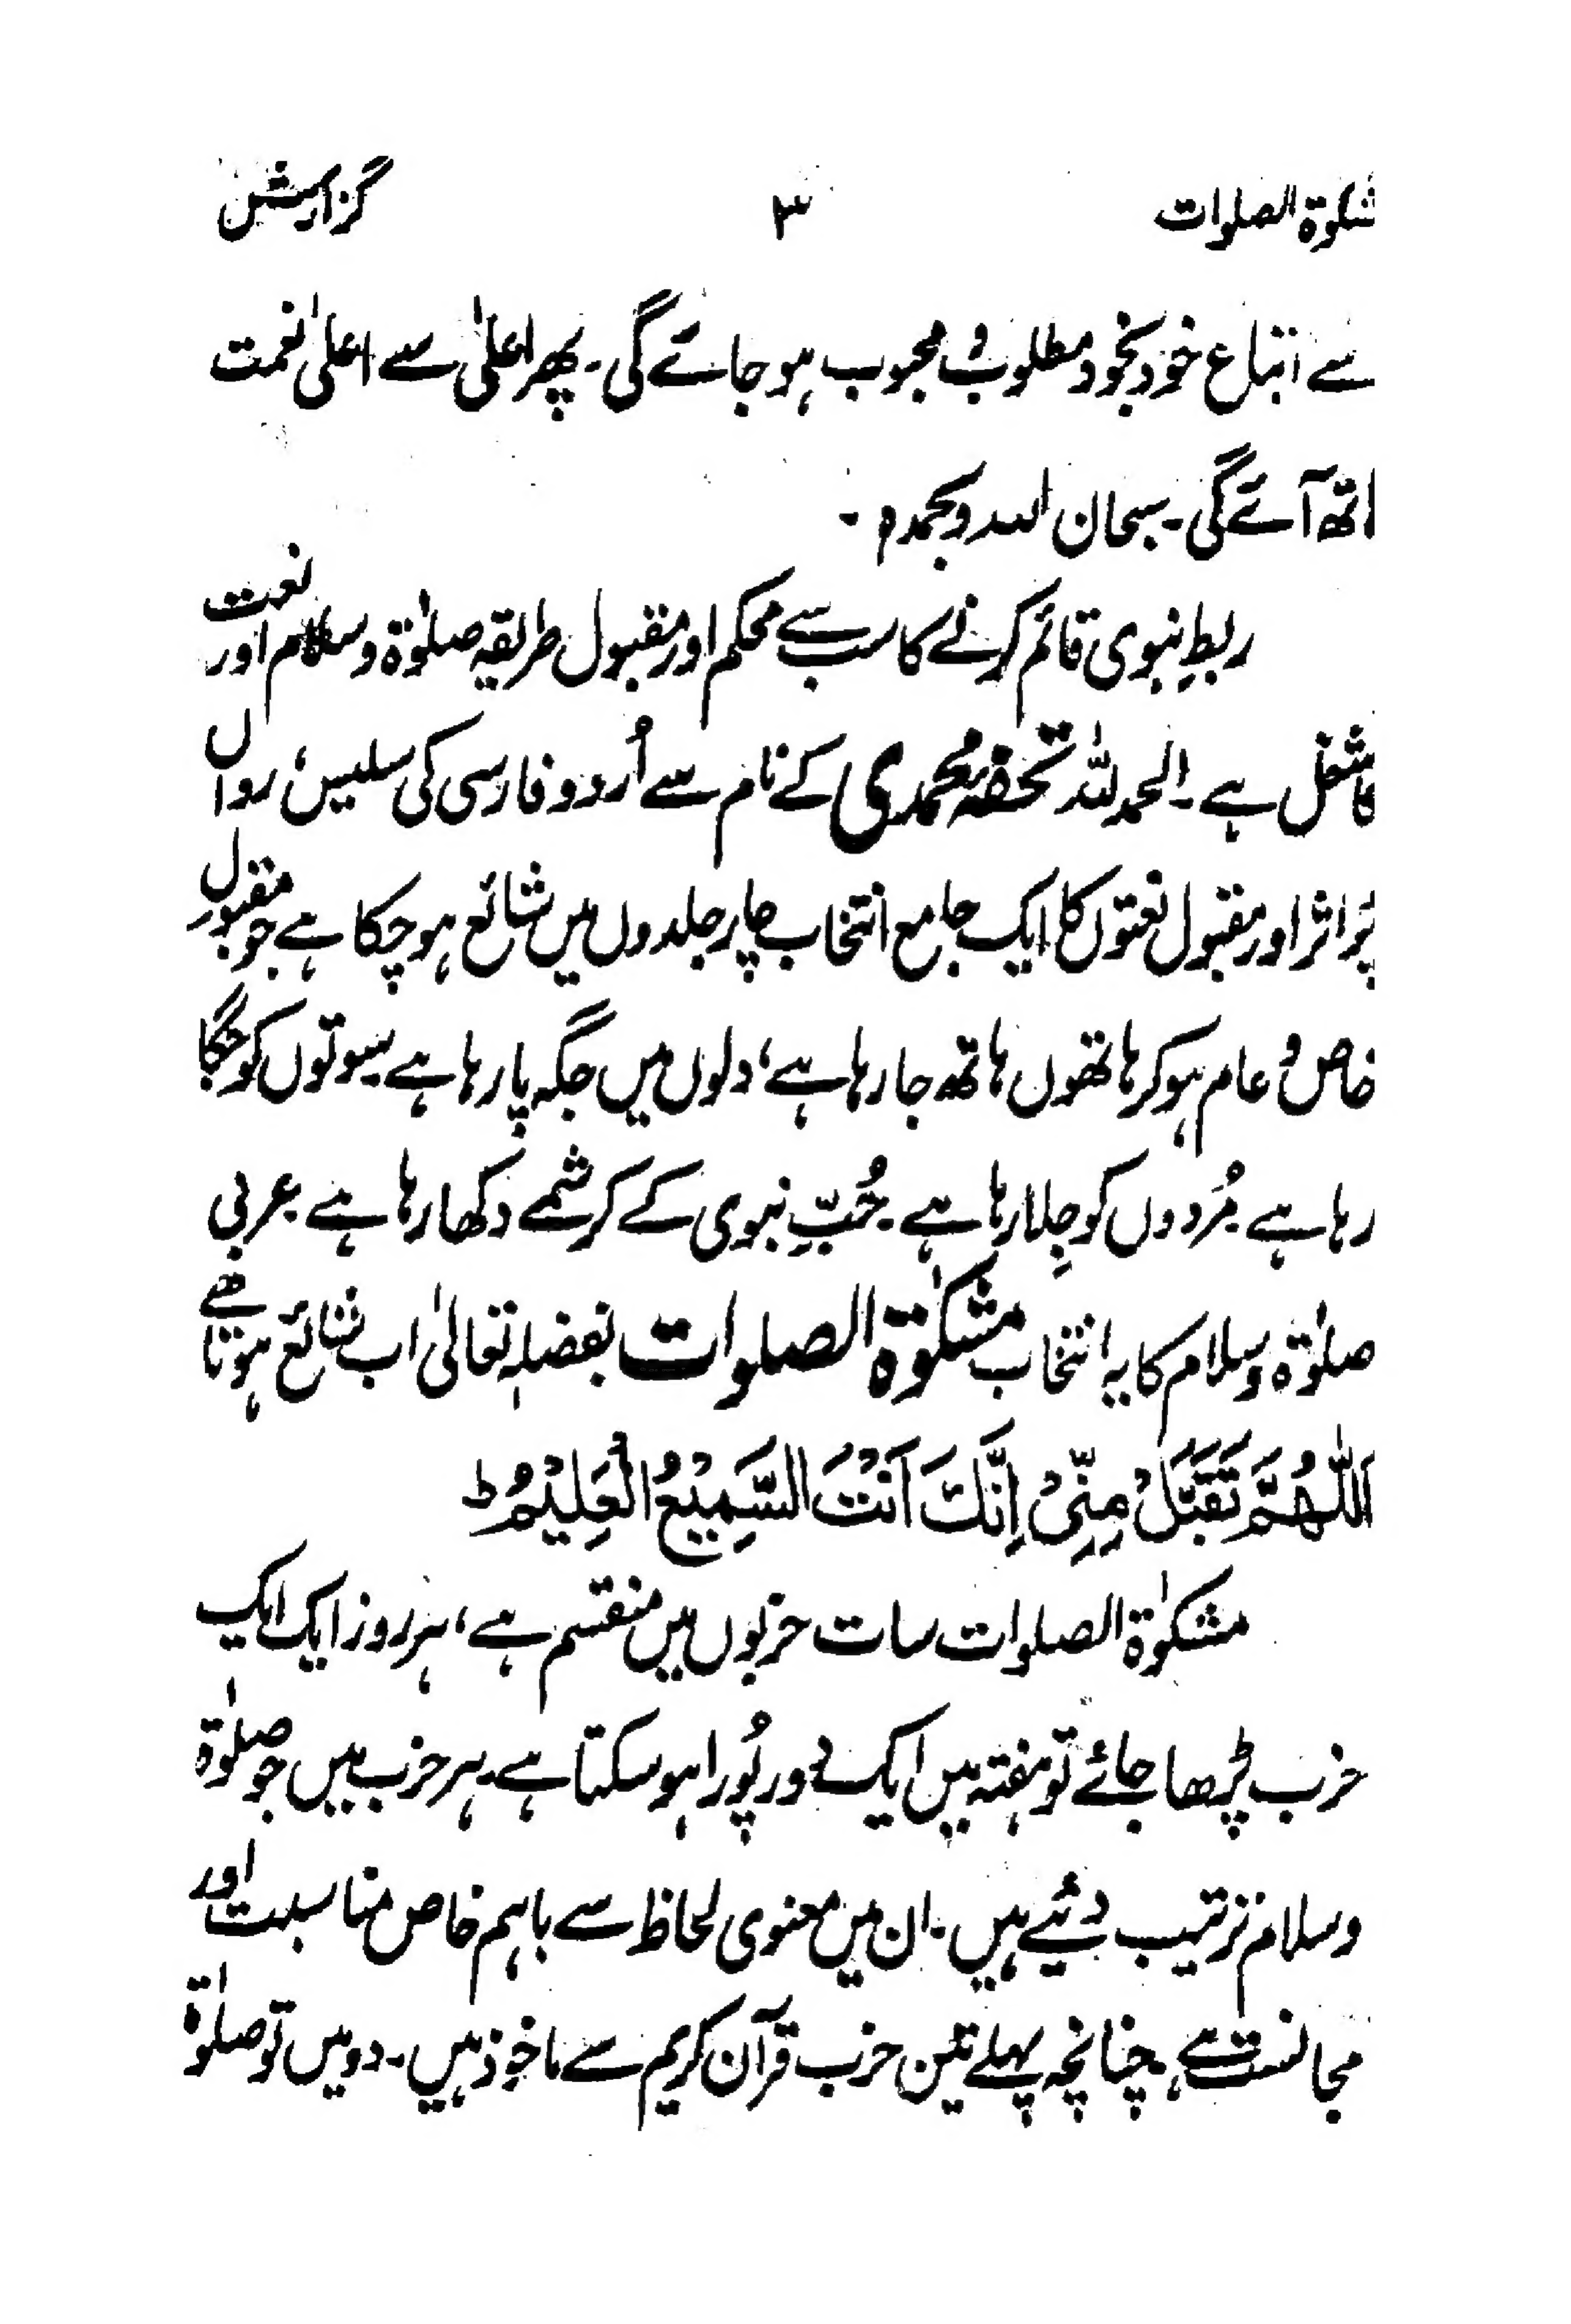 شکوٰۃ الصلوات ۳ گزارش
سے اتباع خود بخود مطلوب و محبوب ہو جائے گی۔ پھر اعلیٰ سے اعلیٰ نعمت
اتھ آئے گی۔ سبحان اللہ وبحمدہ۔
ربطِ نبوی قائم کرنے کا سب سے محکم اور مقبول طریقہ صلوٰۃ و سلام اور نعت
کا شغل ہے۔ الحمدللہ تحفہ محمدی کے نام سے اُردو فارسی کی سلیس، رواں
پُر اثر اور مقبول نعتوں کا ایک جامع انتخاب چار جلدوں میں شائع ہو چکا ہے جو مقبول
خاص و عام ہو کر ہاتھوں ہاتھ جا رہا ہے، دلوں میں جگہ پا رہا ہے۔ سوتوں کو جگا
رہا ہے۔ مُردوں کو جِلا رہا ہے۔ حُبِّ نبوی کے کرشمے دکھا رہا ہے۔ عربی
صلوٰۃ و سلام کا یہ انتخاب مشکوٰۃ الصلوات بفضلہٖ تعالیٰ اب شائع ہوتا ہے
اَللّٰهُمَّ تَقَبَّلْ مِنِّیْ اِنَّکَ اَنْتَ السَّمِیْعُ الْعَلِیْمُ ط
مشکوٰۃ الصلوات سات حزبوں میں منقسم ہے، ہر روز ایک ایک
حزب پڑھا جائے تو ہفتہ میں ایک دور پُورا ہو سکتا ہے۔ ہر حزب میں جو صلوٰۃ
و سلام ترتیب دئیے ہیں۔ ان میں معنوی لحاظ سے باہم خاص مناسبت اور
مجانست ہے۔ چنانچہ پہلے تین حزب قرآن کریم سے ماخوذ ہیں۔ دو میں تو صلوٰۃ